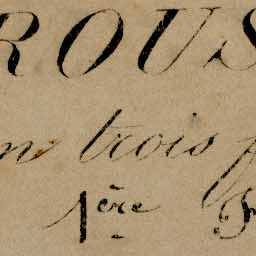 ROUS
n trois
1ère